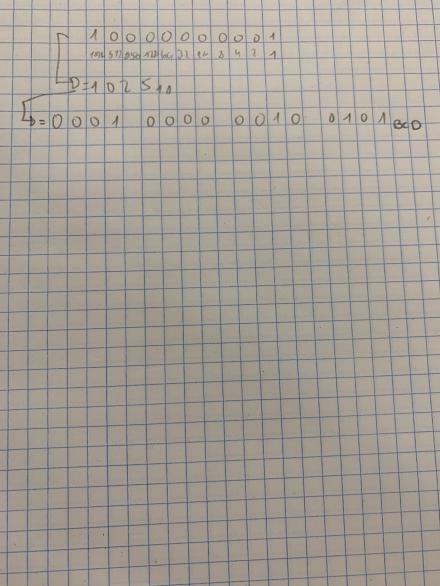 1 0 0 0 0 0 0 0 0 0 1
1024 512 256 128 64 32 16 8 4 2 1
D=1 0 2 5 10
D= 0 0 0 1 0 0 0 0 0 0 1 0 0 1 0 1 BCD